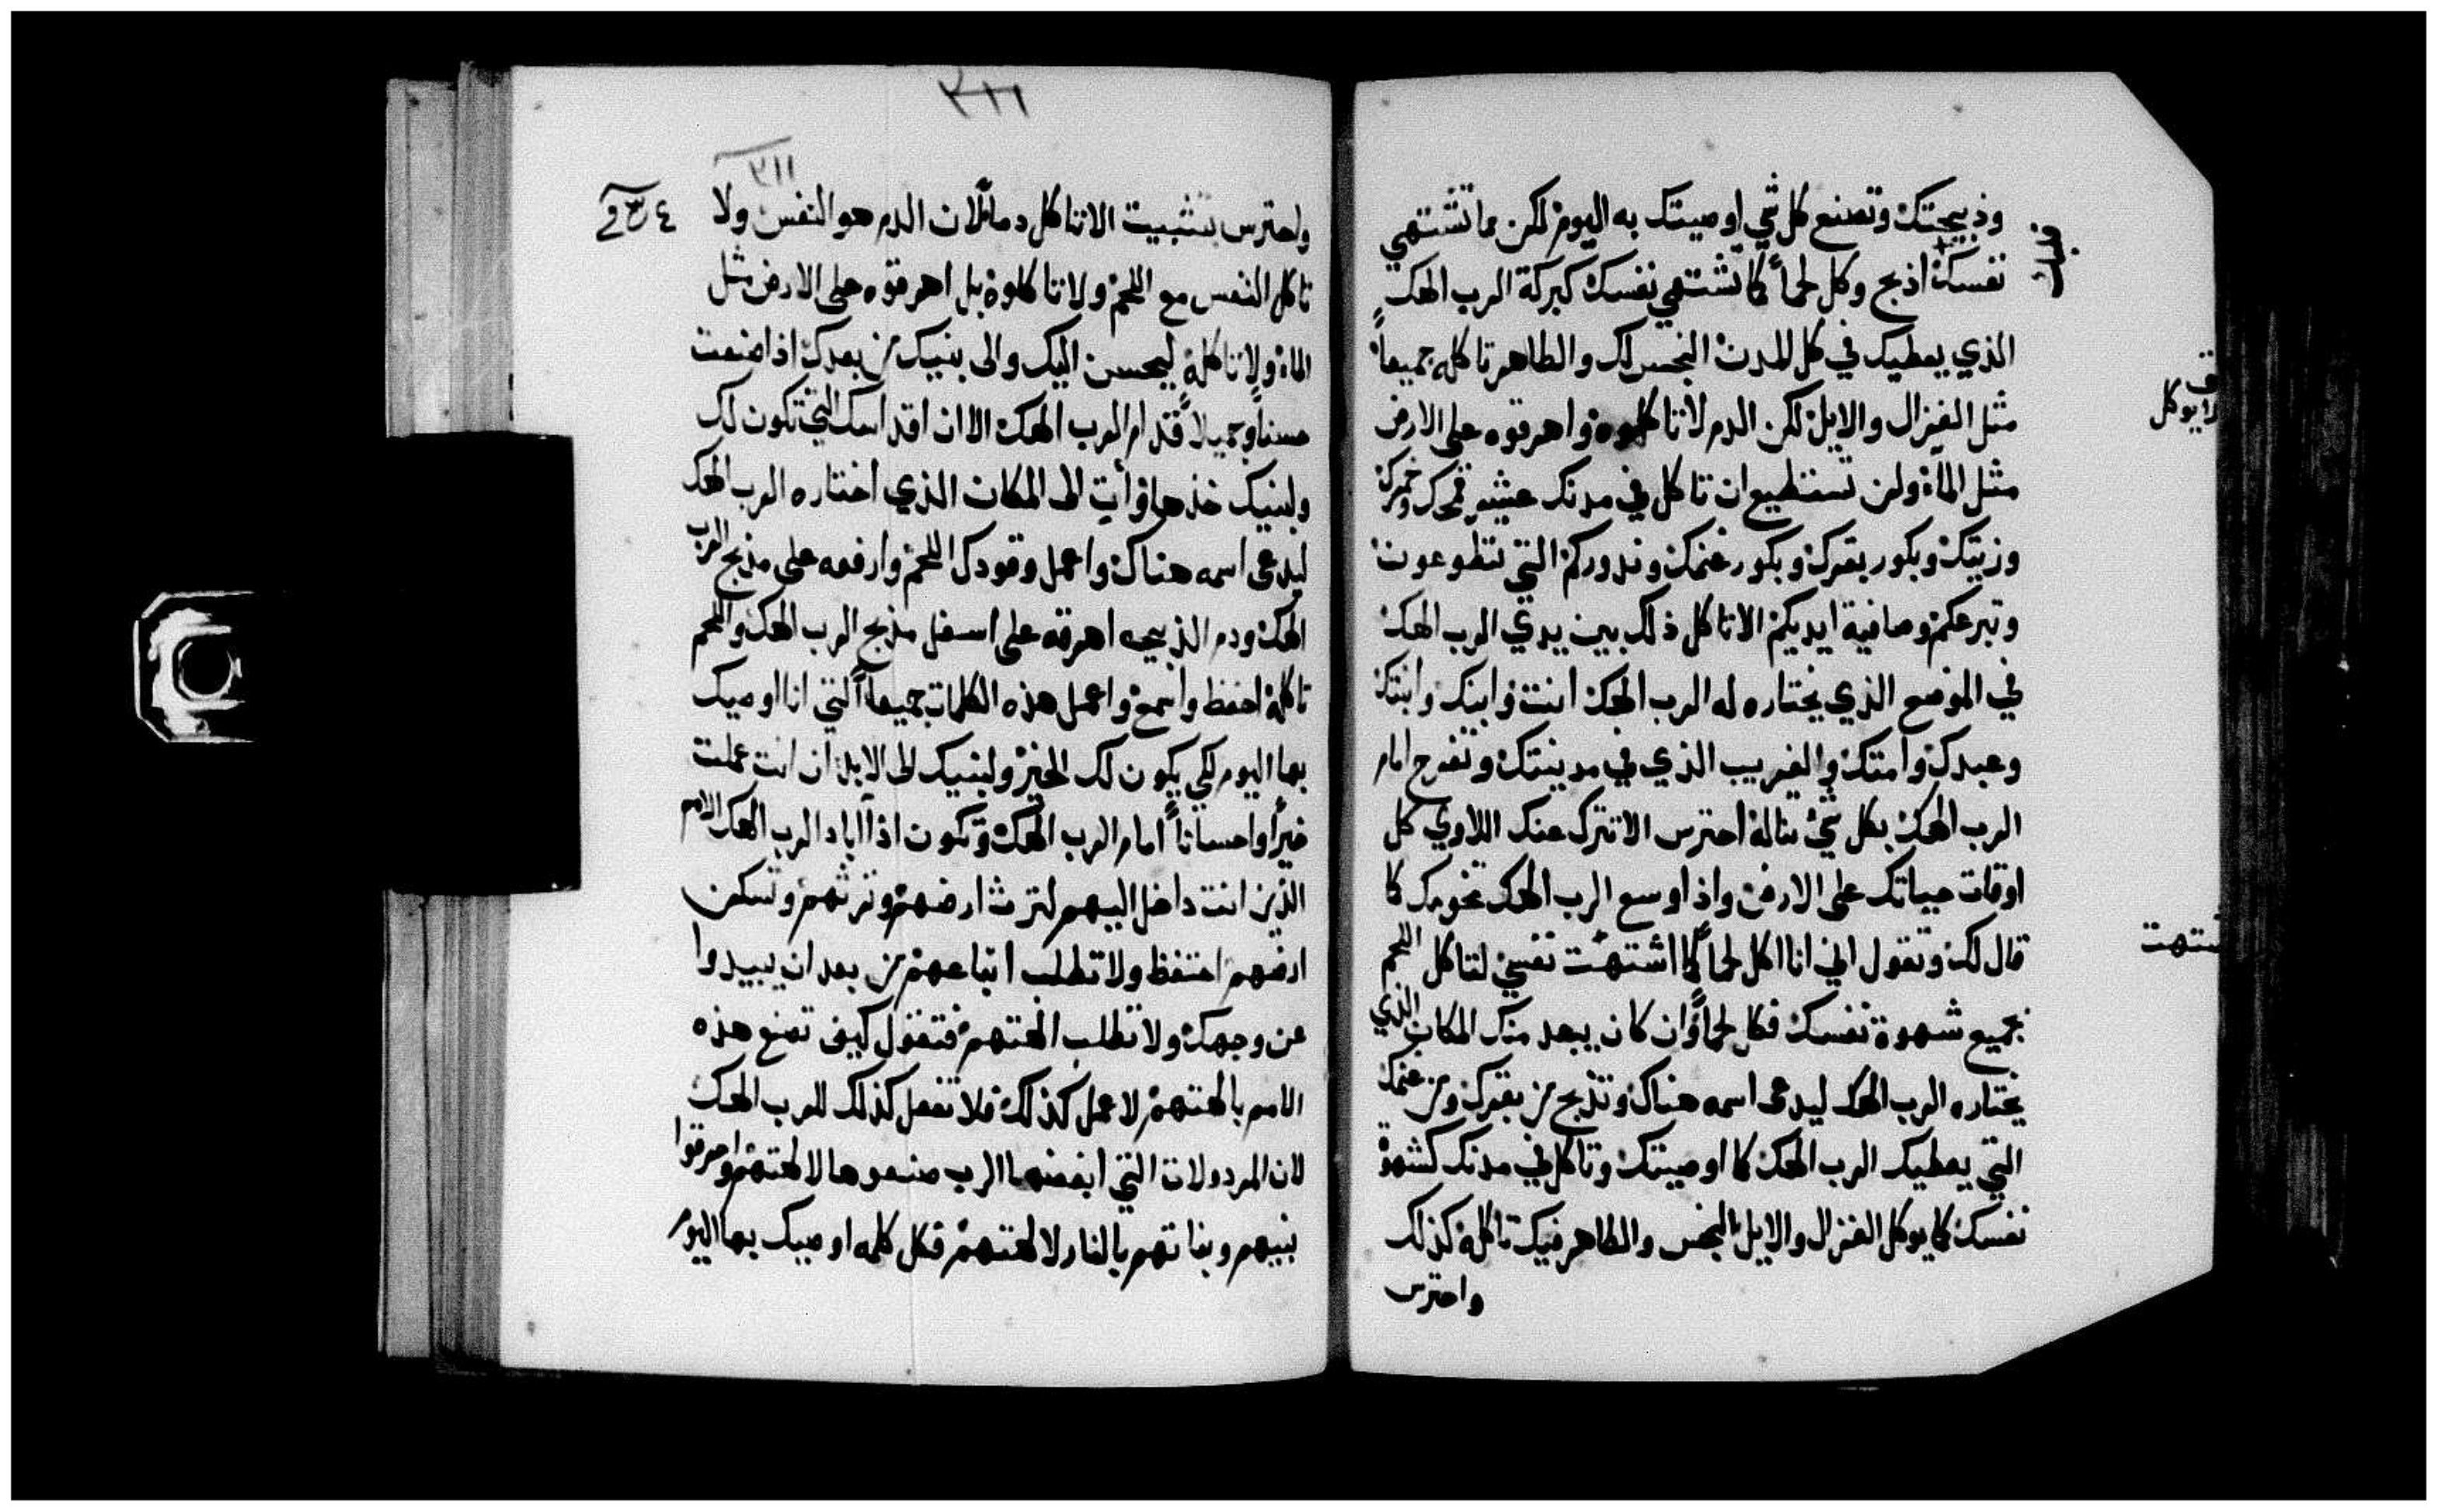 وذبيحتك وتصنع كل شي اوصيتك به اليوم لكن مما تشتهي
نفسك اذبح وكل لحماً كما تشتهي نفسك كبركة الرب الهك
الذي يعطيك في كل المدن النجس لك والطاهر تاكله جميعاً
مثل الغزال والايل لكن الدم لا تاكلوه واهرقوه على الارض
مثل الماء ولن تستطيع ان تاكل في مدنك عشير قمحك وخمرك
وزيتك وبكور بقرك وبكور غنمك وندوركم التي تتطوعون
وتبرعكم وصافية ايديكم الا تاكل ذلك بين يدي الرب الهك
في الموضع الذي يختاره له الرب الهك انت وابنك وابنتك
وعبدك وامتك والغريب الذي في مدينتك وتفرح امام
الرب الهك بكل شي تناله احترس الا تترك عنك اللاوي كل
اوقات حياتك على الارض واذا وسع الرب الهك تخومك كما
قال لك وتقول اني انا اكل لحماً كما اشتهت نفسي لتاكل اللحم
بجميع شهوة نفسك فكل لحماً وان كان يبعد منك المكان الذي
يختاره الرب الهك ليدعى اسمه هناك وتذبح من بقرك ومن غنمك
التي يعطيك الرب الهك كما اوصيتك وتاكل في مدنك كشهوة
نفسك كما يوكل الغزال والايل النجس والطاهر فيك تاكله كذلك
واحترس
يوكل
شتهت
٣١١
٣١١
واحترس بتثبيت الا تاكل دماً لان الدم هو النفس ولا
تاكل النفس مع اللحم ولا تاكلوه بل اهرقوه على الارض مثل
الماء ولا تاكله ليحسن اليك والى بنيك من بعدك اذا صنعت
حسناً وجميلاً قدام الرب الهك الا ان اقداسك التي تكون لك
ولبنيك خذها وأت الى المكان الذي اختاره الرب الهك
ليدعى اسمه هناك واعمل وقودك اللحم وارفعه على مذبح الرب
الهك ودم الذبيحه اهرقه على اسفل مذبح الرب الهك واللحم
تاكله احفظ واسمع واعمل هذه الكلمات جميعاً التي انا اوصيك
بها اليوم لكي يكون لك الخير ولبنيك الى الابد ان انت عملت
خيراً واحساناً امام الرب الهك وتكون اذا اباد الرب الهك الامم
الذين انت داخل اليهم لترث ارضهم وترثهم وتسكن
ارضهم احتفظ ولا تطلب اتباعهم من بعد ان يبيدوا
عن وجهك ولا تطلب الهتهم فتقول كيف تصنع هذه
الامم بالهتهم لاعمل كذلك فلا تفعل كذلك للرب الهك
لان المردولات التي ابغضها الرب صنعوها لالهتهم واحرقوا
بنيهم وبناتهم بالنار لالهتهم فكل كلمه اوصيك بها اليوم